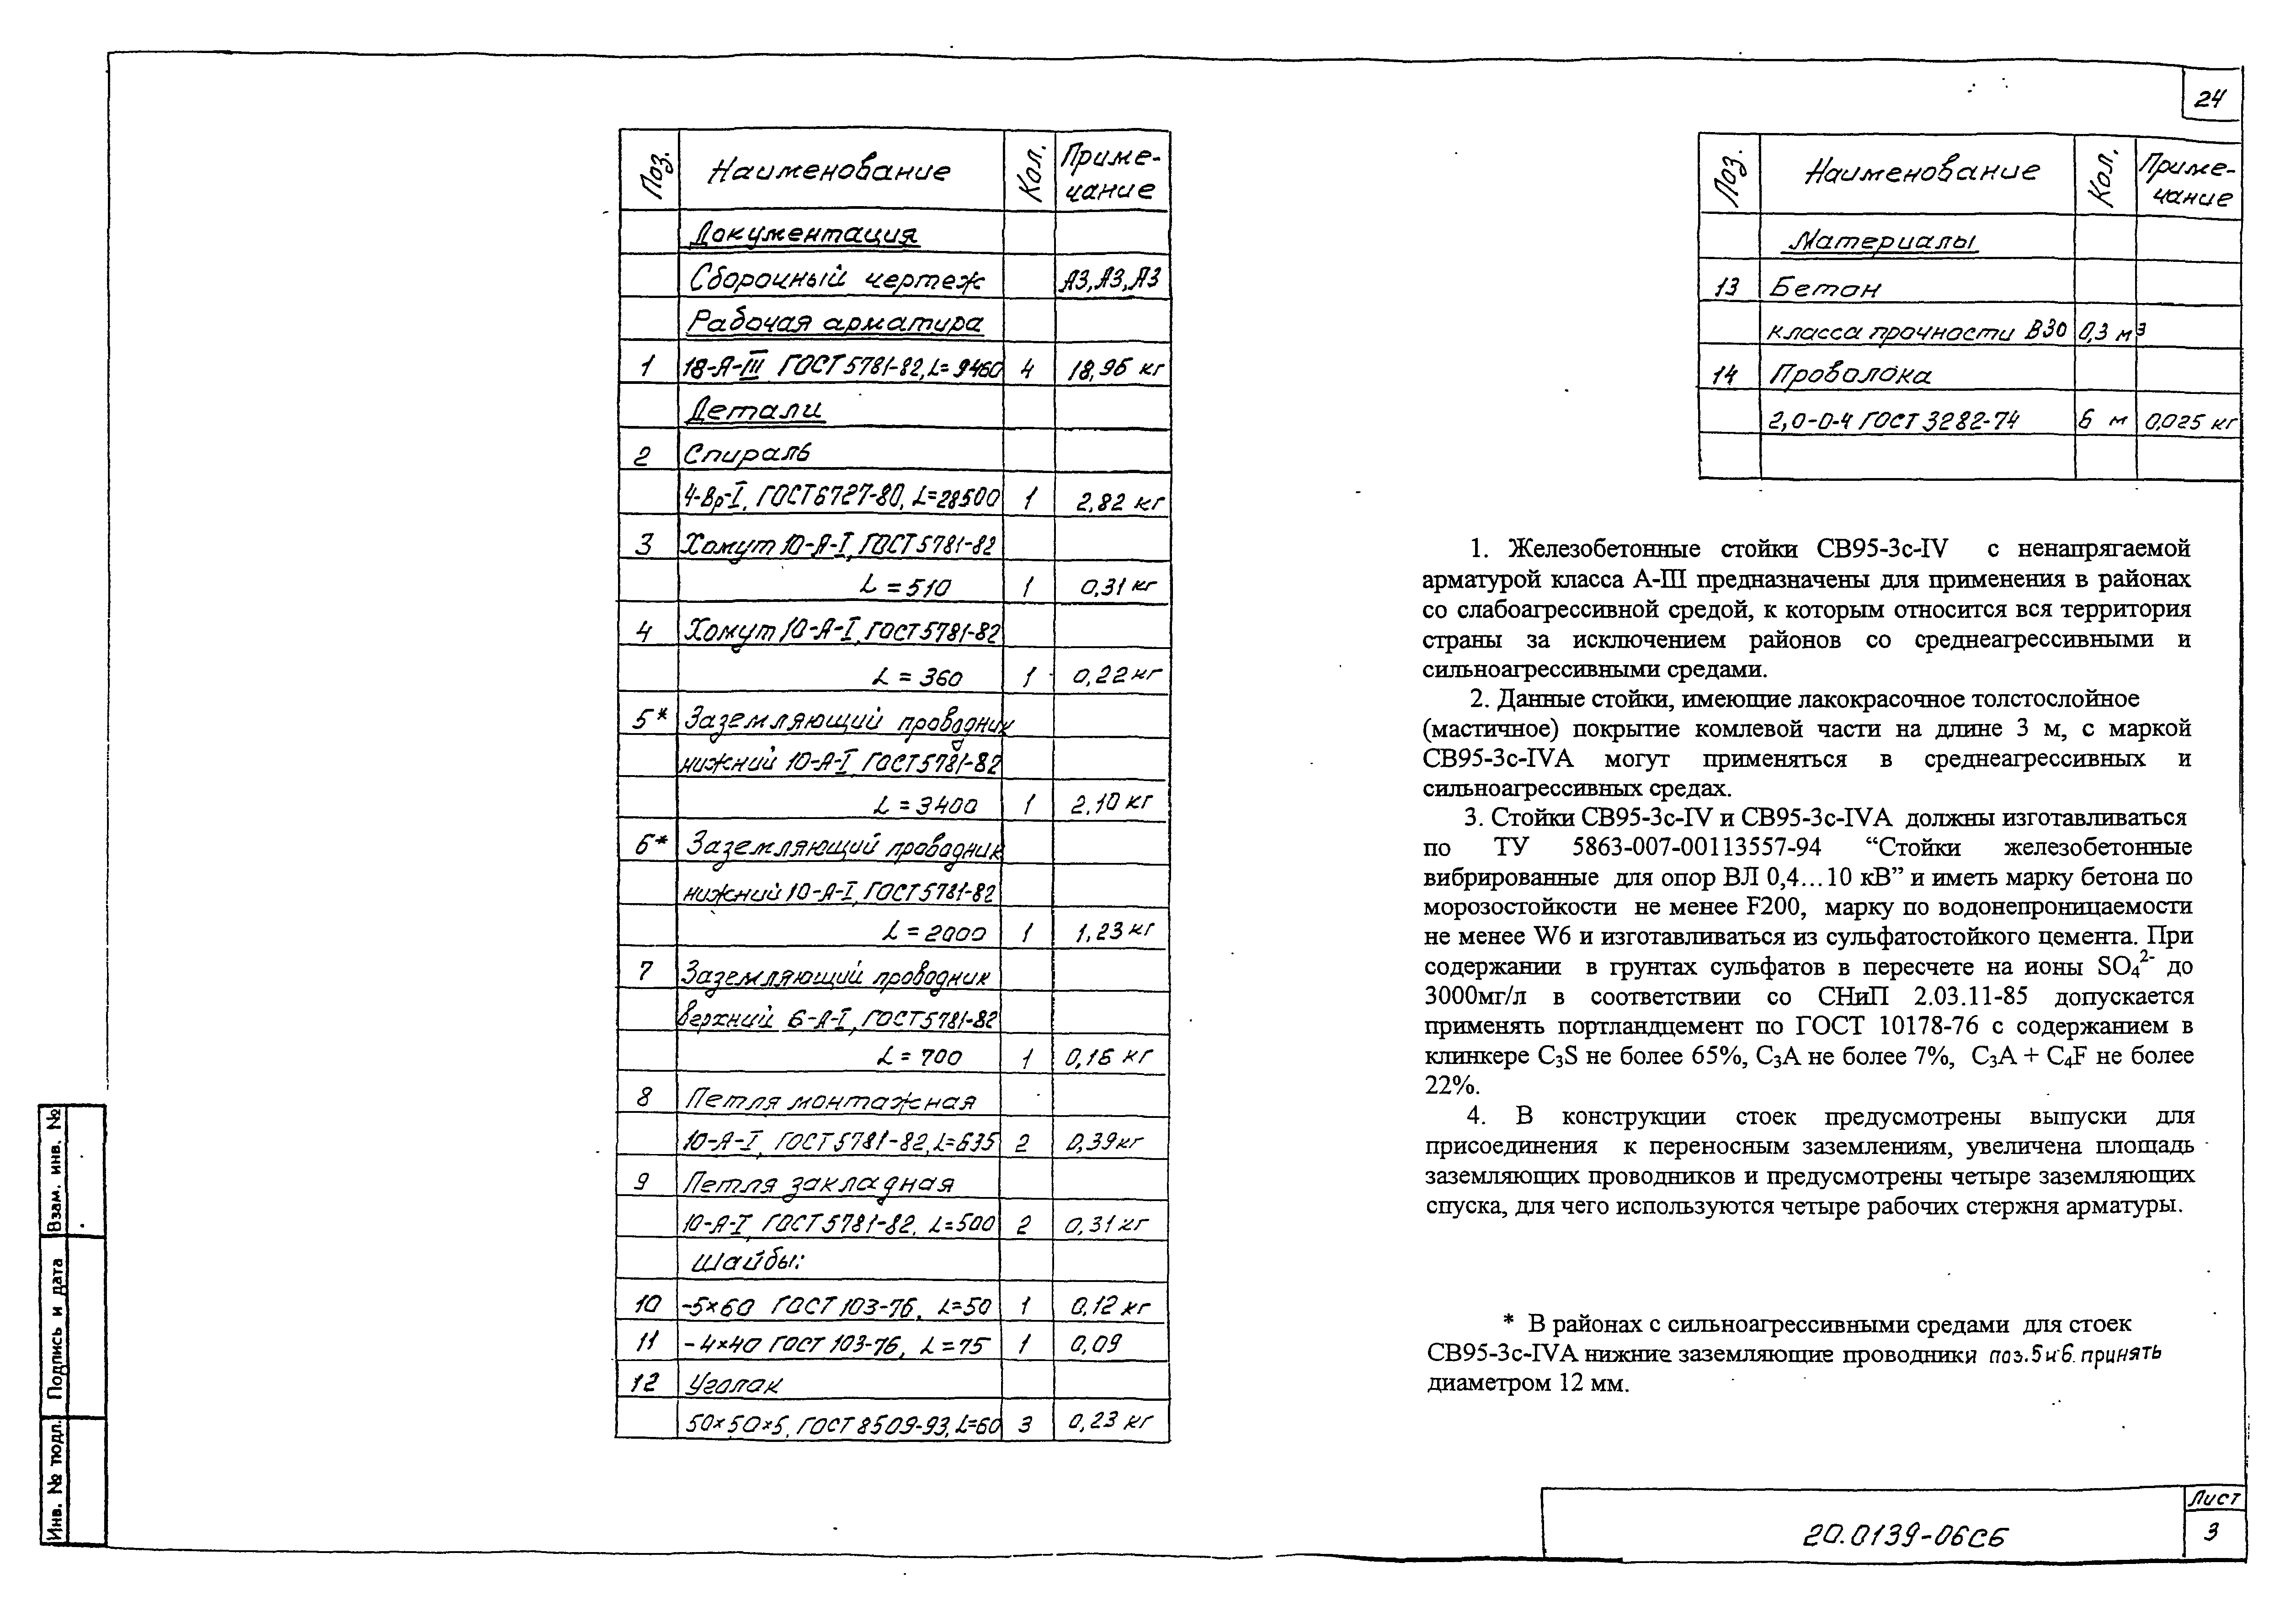 24
Поз. Наименование Кол. Приме-
чание
Документация
Сборочный чертеж А3,А3,А3
Рабочая арматура
1 18-А-III ГОСТ 5781-82, L=9460 4 18,96 кг
Детали
2 Спираль
4-Вр-I, ГОСТ 6727-80, L=28500 1 2,82 кг
3 Хомут 10-А-I, ГОСТ 5781-82
L = 510 1 0,31 кг
4 Хомут 10-А-I, ГОСТ 5781-82
L = 360 1 0,22 кг
5* Заземляющий проводник
нижний 10-А-I, ГОСТ 5781-82
L = 3400 1 2,10 кг
6* Заземляющий проводник
нижний 10-А-I, ГОСТ 5781-82
L = 2000 1 1,23 кг
7 Заземляющий проводник
верхний 6-А-I, ГОСТ 5781-82
L = 700 1 0,16 кг
8 Петля монтажная
10-А-I, ГОСТ 5781-82, L=635 2 0,39 кг
9 Петля закладная
10-А-I, ГОСТ 5781-82, L=500 2 0,31 кг
Шайбы:
10 -5×60 ГОСТ 103-76, L=50 1 0,12 кг
11 -4×40 ГОСТ 103-76, L=75 1 0,09
12 Уголок
50×50×5, ГОСТ 8509-93, L=60 3 0,23 кг
Поз. Наименование Кол. Приме-
чание
Материалы
13 Бетон
класса прочности В30 0,3 м³
14 Проволока
2,0-0-4 ГОСТ 3282-74 6 м 0,025 кг
1. Железобетонные стойки СВ95-3с-IV с ненапрягаемой
арматурой класса А-III предназначены для применения в районах
со слабоагрессивной средой, к которым относится вся территория
страны за исключением районов со среднеагрессивными и
сильноагрессивными средами.
2. Данные стойки, имеющие лакокрасочное толстослойное
(мастичное) покрытие комлевой части на длине 3 м, с маркой
СВ95-3с-IVА могут применяться в среднеагрессивных и
сильноагрессивных средах.
3. Стойки СВ95-3с-IV и СВ95-3с-IVА должны изготавливаться
по ТУ 5863-007-00113557-94 “Стойки железобетонные
вибрированные для опор ВЛ 0,4...10 кВ” и иметь марку бетона по
морозостойкости не менее F200, марку по водонепроницаемости
не менее W6 и изготавливаться из сульфатостойкого цемента. При
содержании в грунтах сульфатов в пересчете на ионы SO₄²⁻ до
3000мг/л в соответствии со СНиП 2.03.11-85 допускается
применять портландцемент по ГОСТ 10178-76 с содержанием в
клинкере С₃S не более 65%, С₃А не более 7%, С₃А + С₄F не более
22%.
4. В конструкции стоек предусмотрены выпуски для
присоединения к переносным заземлениям, увеличена площадь
заземляющих проводников и предусмотрены четыре заземляющих
спуска, для чего используются четыре рабочих стержня арматуры.
* В районах с сильноагрессивными средами для стоек
СВ95-3с-IVА нижние заземляющие проводники поз.5 и 6 принять
диаметром 12 мм.
Инв. № подл. Подпись и дата Взам. инв. №
20.0139-06СБ
Лист
3